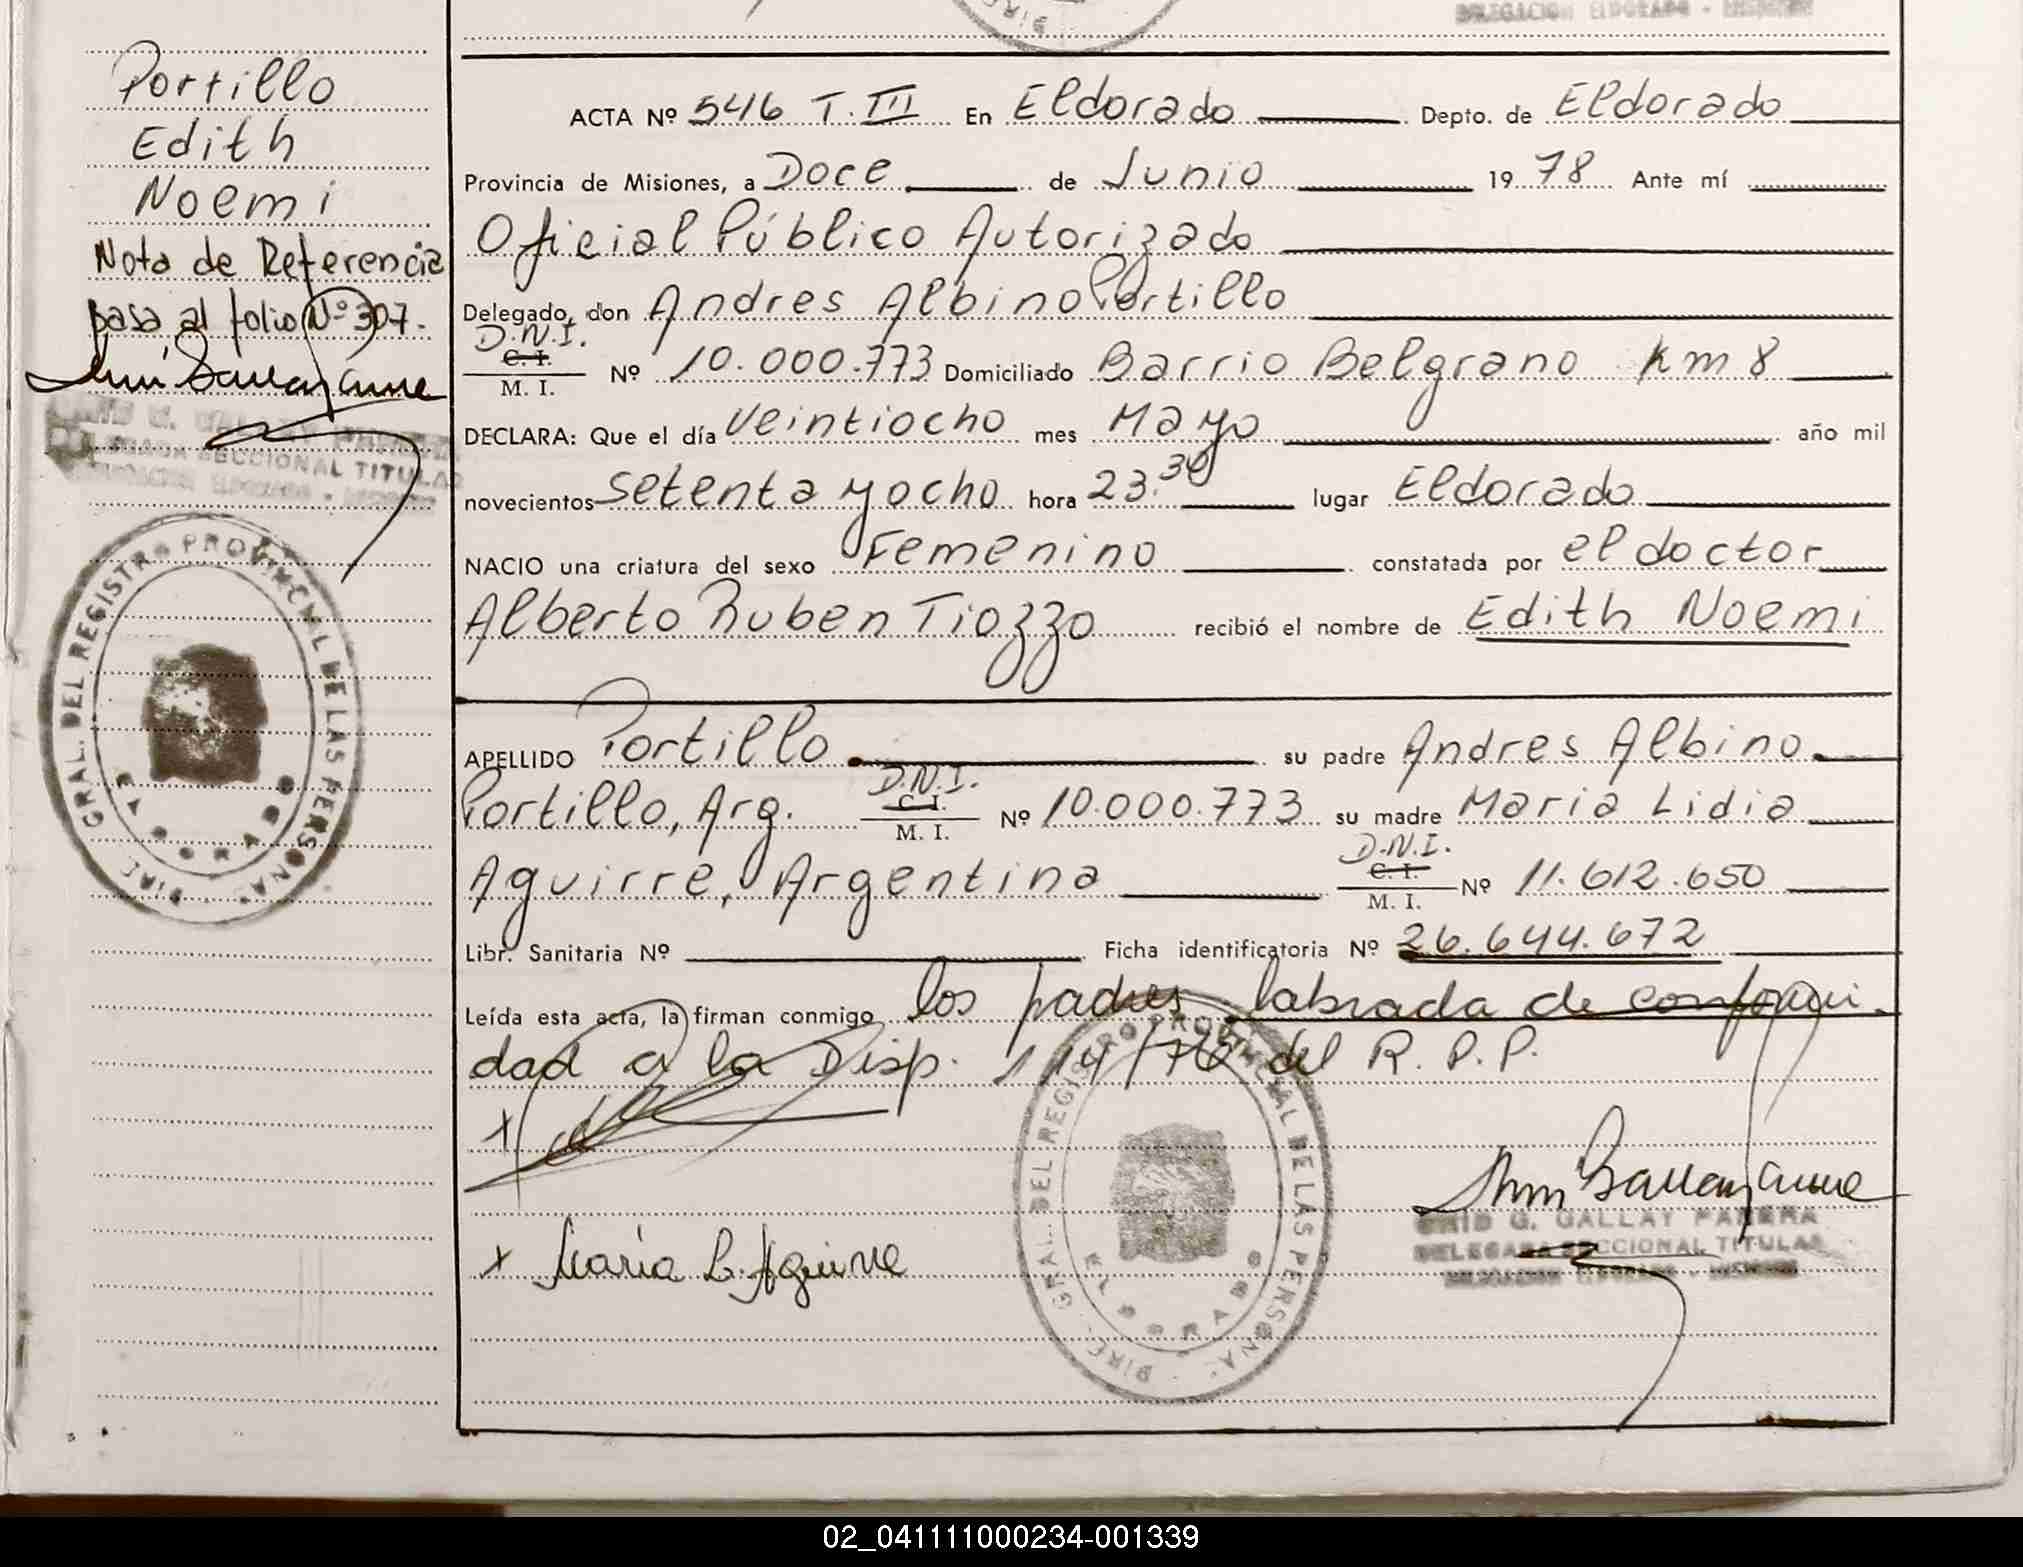 Portillo
Edith
Noemi
Nota de Referencia
pasa al folio Nº 307.
SECCIONAL TITULAR
GRAL. DEL REGISTRO PROVINCIAL DE LAS PERSONAS
ACTA Nº 546 T. III En Eldorado Depto. de Eldorado
Provincia de Misiones, a Doce de Junio 19 78 Ante mí
Oficial Público Autorizado
Delegado, don Andres Albino Portillo
D.N.I.
C. I.
M. I. Nº 10.000.773 Domiciliado Barrio Belgrano Km 8
DECLARA: Que el día veintiocho mes Mayo año mil
novecientos setenta y ocho hora 23.30 lugar Eldorado
NACIO una criatura del sexo Femenino constatada por el doctor
Alberto Ruben Tiozzo recibió el nombre de Edith Noemi
APELLIDO Portillo su padre Andres Albino
D.N.I.
C. I.
Portillo, Arg. M. I. Nº 10.000.773 su madre Maria Lidia
D.N.I.
C. I.
Aguirre, Argentina M. I. Nº 11.612.650
Libr. Sanitaria Nº Ficha identificatoria Nº 26.644.672
Leída esta acta, la firman conmigo los padres labrada de conformi-
dad a la Disp. 114/76 del R. P. P.
x
x María L. Aguirre
G. GALLAY PANERA
DELEGADA SECCIONAL TITULAR
GRAL. DEL REGISTRO PROVINCIAL DE LAS PERSONAS
02_041111000234-001339